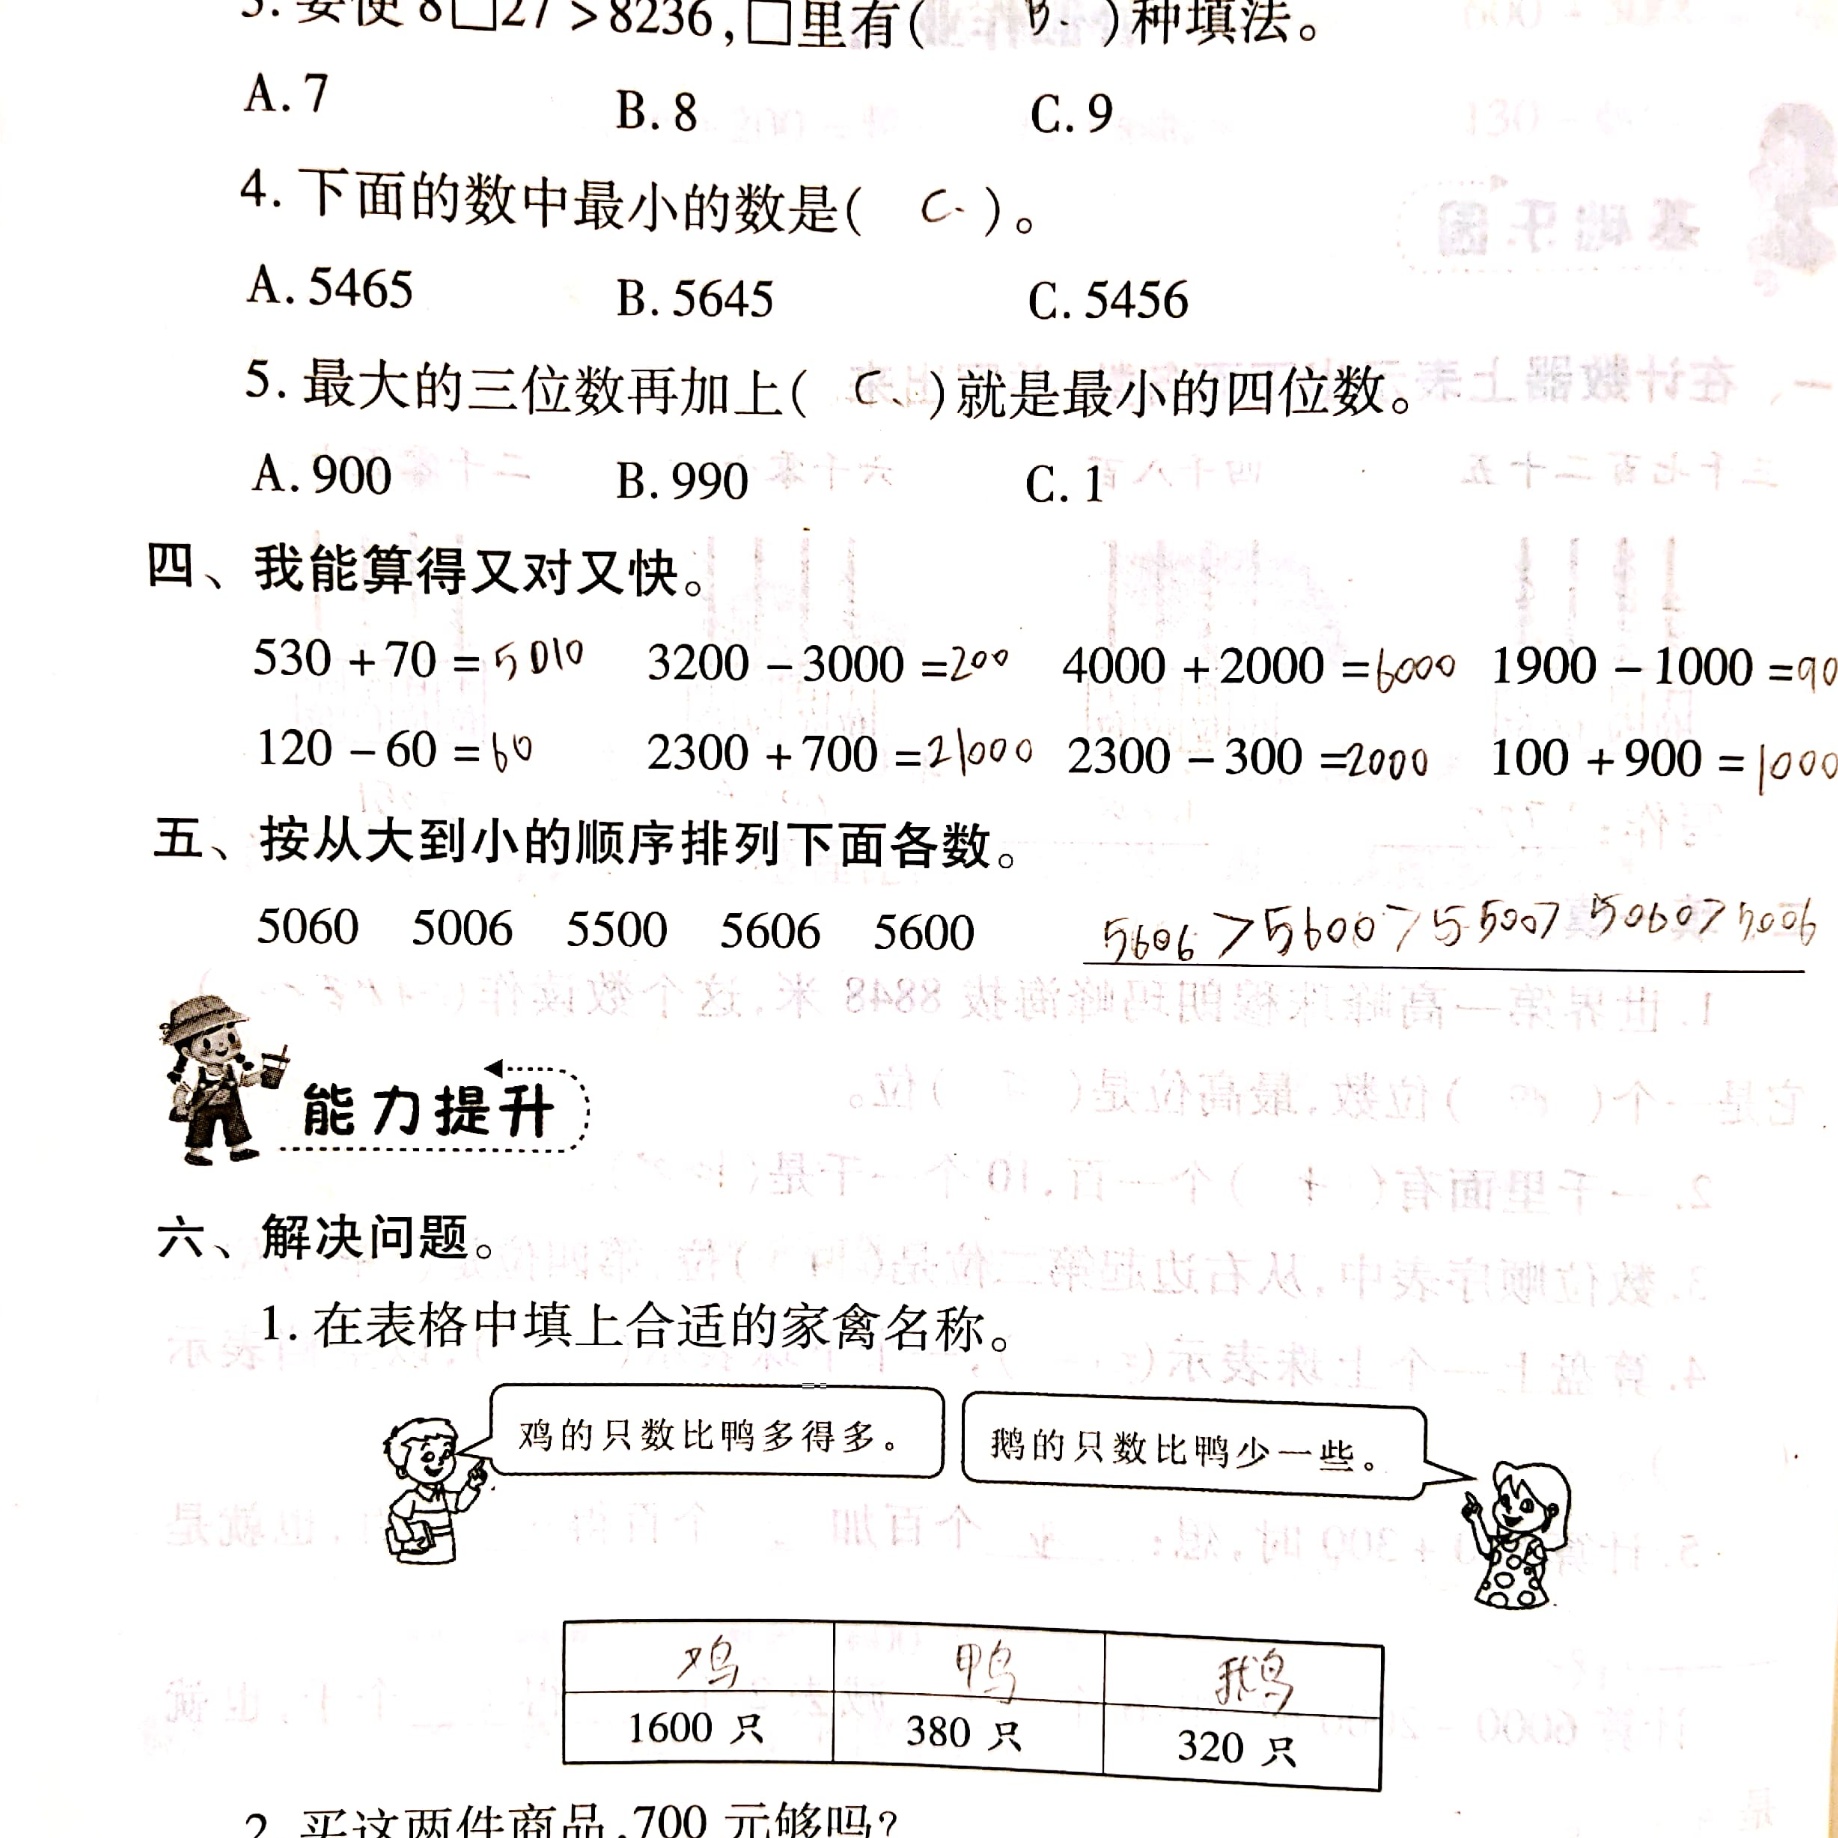 3.要使8□27>8236,□里有( B. )种填法。
A.7 B.8 C.9
4.下面的数中最小的数是( C. )。
A.5465 B.5645 C.5456
5.最大的三位数再加上( C、)就是最小的四位数。
A.900 B.990 C.1
四、我能算得又对又快。
530+70=5010 3200-3000=200 4000+2000=6000 1900-1000=90
120-60=60 2300+700=21000 2300-300=2000 100+900=1000
五、按从大到小的顺序排列下面各数。
5060 5006 5500 5606 5600 5606>5600>5500>5060>5006
能力提升
六、解决问题。
1.在表格中填上合适的家禽名称。
鸡的只数比鸭多得多。 鹅的只数比鸭少一些。
鸡 鸭 鹅
1600只 380只 320只
2.买这两件商品,700元够吗?